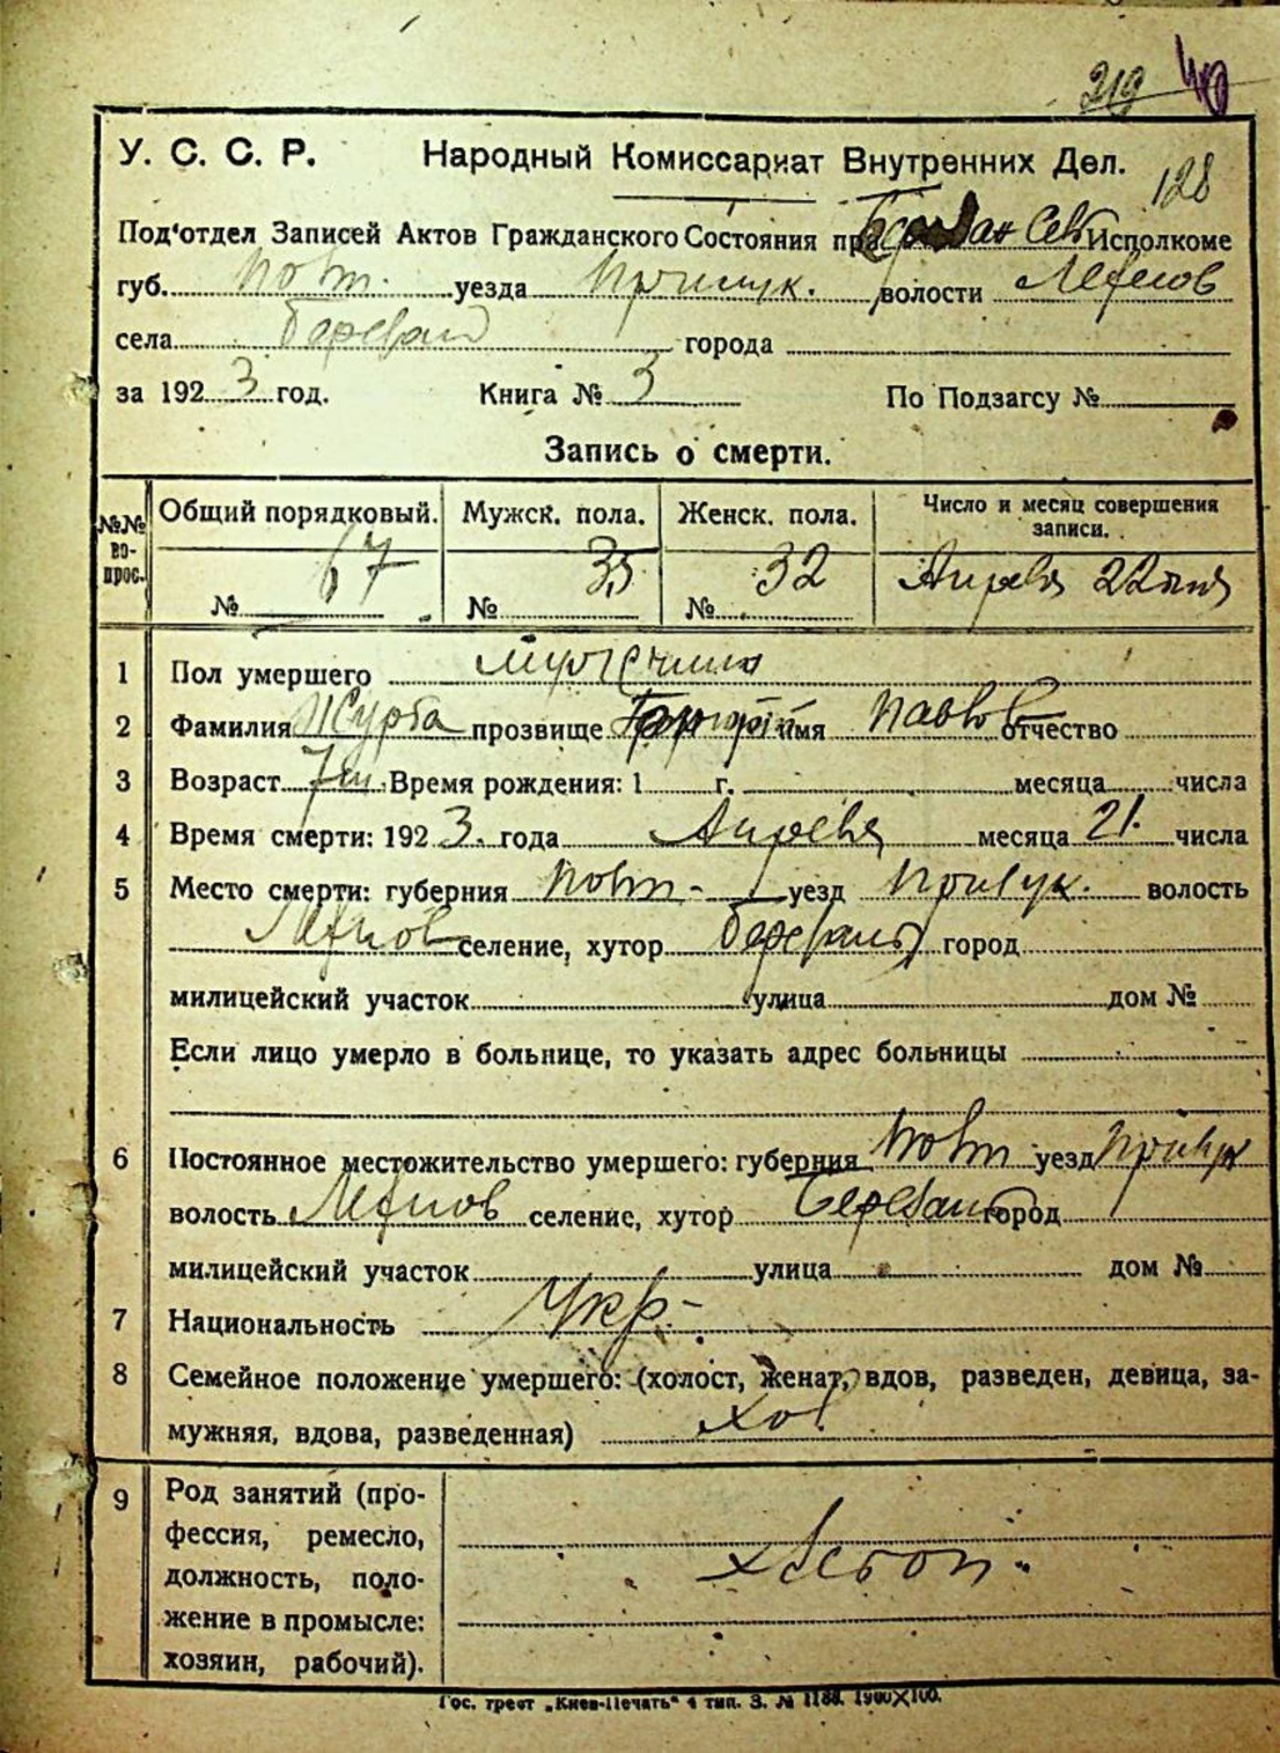 219 40
У. С. С. Р. Народный Комиссариат Внутренних Дел.
128
Под'отдел Записей Актов Гражданского Состояния при Исполкоме
губ. Полт. уезда Прилук. волости
села города
за 1923 год. Книга № 3 По Подзагсу №
Запись о смерти.
№№ во-прос. Общий порядковый. Мужск. пола. Женск. пола. Число и месяц совершения записи.
№ 67 № 35 № 32 Апреля 22 дня
1 Пол умершего
2 Фамилия Журба прозвище имя Павлов отчество
3 Возраст Время рождения: 1 г. месяца числа
4 Время смерти: 1923. года Апреля месяца 21. числа
5 Место смерти: губерния Полт- уезд Прилук. волость
селение, хутор город
милицейский участок улица дом №
Если лицо умерло в больнице, то указать адрес больницы
6 Постоянное местожительство умершего: губерния Полт уезд Прилук
волость селение, хутор город
милицейский участок улица дом №
7 Национальность Укр-
8 Семейное положение умершего: (холост, женат, вдов, разведен, девица, за-
мужняя, вдова, разведенная) хол
9 Род занятий (про-
фессия, ремесло,
должность, поло- хлебоп.
жение в промысле:
хозяин, рабочий).
Гос. трест „Киев-Печать" 4 тип. З. № 1188. 1900×100.